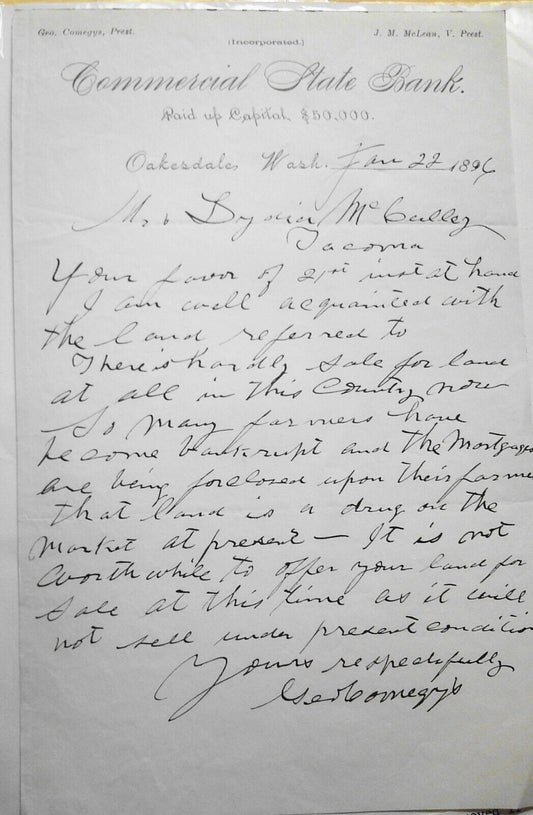 Geo. Comegys, Prest. J. M. McLean, V. Prest.
(Incorporated.)
Commercial State Bank.
Paid up Capital, $50,000.
Oakesdale, Wash. Jan 22 1896
Mrs Lydia McCulley
Tacoma
Your favor of 21st inst at hand
I am well acquainted with
the land referred to
There is hardly sale for land
at all in this County now
So many farmers have
become bankrupt and the Mortgages
are being foreclosed upon their farms
that land is a drug on the
Market at present – It is not
worth while to offer your land for
sale at this time as it will
not sell under present condition
Yours respectfully
Geo Comegys